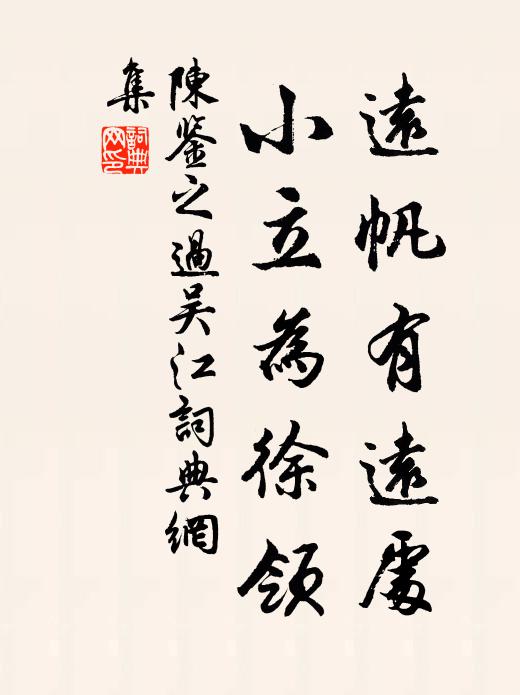 遠帆有遠處
小立為徐領
陳鑒之過吳江詞典網
集
詞典
网印